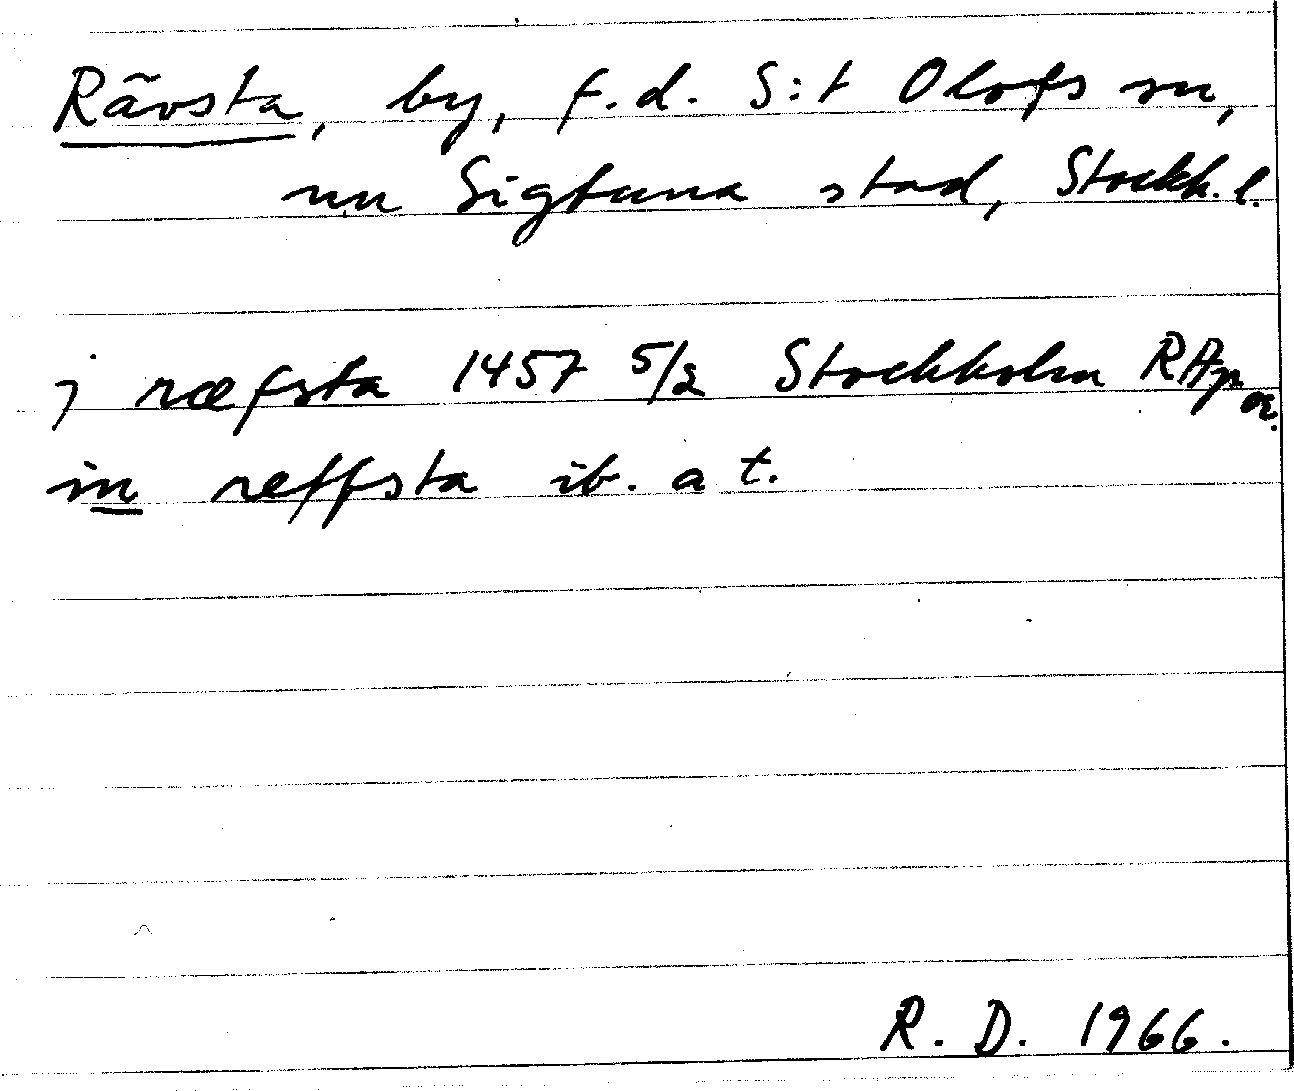 Rävsta, by, f.d. S:t Olofs sn,
nu Sigtuna stad, Stockh. l.
j ræfsta 1457 5/2 Stockholm RAp or.
in reffsta ib. a t.
R. D. 1966.